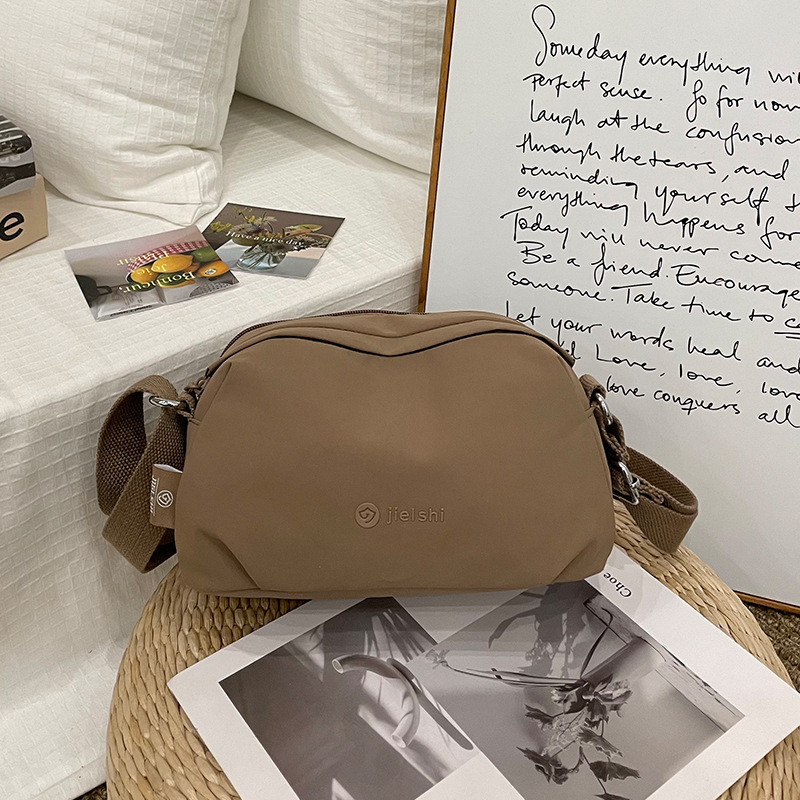 Someday everything wil
perfect sense. So for now
laugh at the confusion
through the tears, and
reminding yourself th
everything happens for
Today will never come
Be a friend. Encourage
someone. Take time to ca
Let your words heal and
Love, love, love
love conquers all
Have a cup
Plaisir
Joie
Bonheur
e
jielshi
Choe